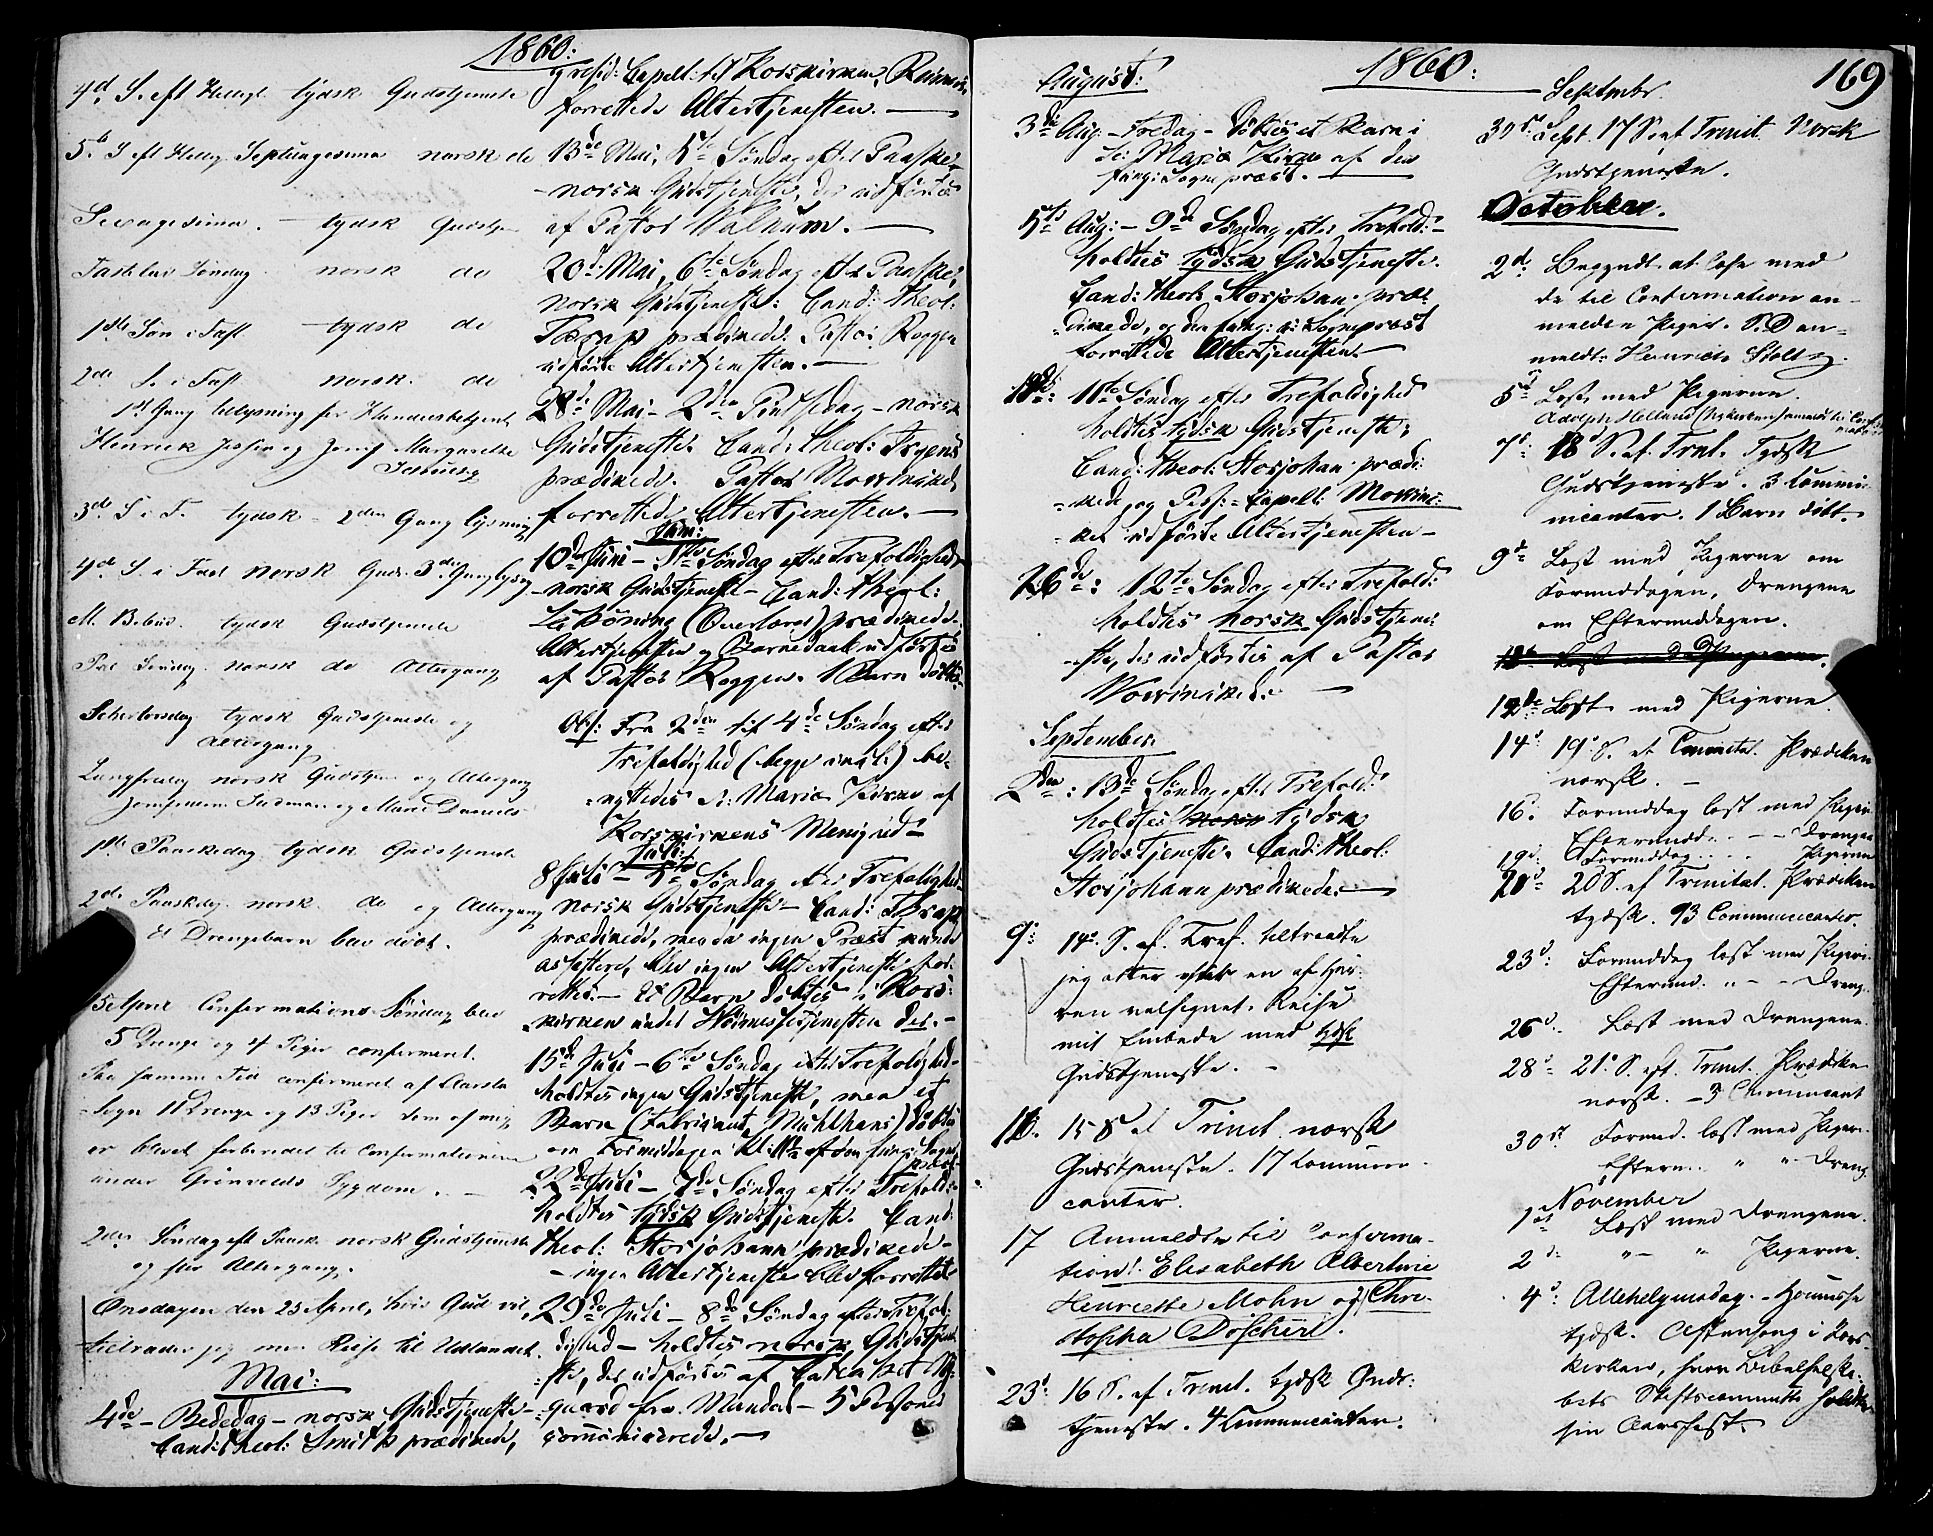 1860:
4d. S. eft Hellig. tydsk Gudstjeneste
5te S eft Hellig. Septuagesima norsk do
Sexagesima. – tydsk Gudstjen
Fastelavns Søndag. norsk do
1ste Søn i Fast. tydsk do
2den S. i Fast norsk. do
1st Gang lysning for Handelsbetjent
Henrick og Jomf Margarethe
3die S i F. tydsk – 2den Gang lysning
4de S. i Fast norsk Guds. 3die Gang lysng
M. Beb. tydsk Gudstjeneste
Pal Søndag. norsk do Altergang
Skertorsdag tydsk Gudstjeneste og
Altergang
Langfredag norsk Gudstjen og Altergang
1ste Paaskedag tydsk Gudstjeneste
2den Paaskedag norsk. do og Altergang
Et Drengebarn blev døbt.
15 April Confirmations Søndag blev
5 Drenge og 4 Piger confirmeret.
Paa samme Tid confirmeret af
Sogn 11 Drenge og 13 Piger som af mig
er blevet forberedet til Confirmationen
under Grönvolds Sygdom. –
2den Søndag eft Paaske norsk Gudstjeneste
og før Altergang.
Onsdagen den 25 April, hvis Gud vil,
tiltræder jeg min Reise til Udlandet.
Mai:
4de – Bededag – norsk Gudstjeneste –
Cand: theol: Smith prædikede,
resid: Capell: til Korskirken,
forrettede Altertjenesten. —
13de Mai, 5te Søndag efter Paaske,
– norsk Gudstjeneste, der udførtes
af Pastor Walnum. —
20de Mai, 6te Søndag efter Paaske,
norsk Gudstjeneste: Cand: theol:
Tærup prædikede. Pastor Roggen
udførte Altertjenesten. —
28de Mai – 2den Pintsedag – norsk
Gudstjeneste. Cand: theol:
prædikede. Pastor
forrettede Altertjenesten. —
Juni:
10de Juni – 1ste Søndag efter Trefoldighed
– norsk Gudstjeneste – Cand: theol:
(Overlærer) prædikede.
Altertjenesten og Barnedaab udførtes
af Pastor Roggen. 1 Barn døbtes.
Obs: Fra 2den til 4de Søndag efter
Trefoldighed (begge incl:) be-
nyttedes St: Mariæ Kirke af
Korskirkens Menighed –
Juli:
8 Juli – 5te Søndag efter Trefoldighed
norsk Gudstjeneste – Cand: Tærup
prædikede, men da ingen Præst kunde
assistere, blev ingen Altertjeneste for-
rettet. – Barn døbtes i Kors-
kirken under Høimessetjenesten der. –
15de Juli – 6te Søndag efter Trefoldighed –
holdtes ingen Gudstjeneste, men et
Barn (Fabrikant Mühlhans) døbtes
om Formiddagen Kl: af den fung: Sogne-
præst
22de Juli – 7de Søndag efter Trefold: –
holdtes tydsk Gudstjeneste. Cand:
theol: Storjohann prædikede –
– ingen Altertjeneste blev forrettet
29de Juli – 8de Søndag efter Trefol-
dighed – holdtes norsk Gudstjene-
ste, der udførtes af
fra Mandal – 5 Personer
communicerede. —
1860:
169
August:
3die Aug: – Fredag – døbtes et Barn i
St: Mariæ Kirke af den
fung: Sognepræst. —
5te Aug: – 9de Søndag efter Trefold: –
holdtes tydsk Gudstjeneste.
Cand: theol: Storjohan præ-
dikede, og den fung: Sognepræst
forrettede Altertjenesten. —
11te Søndag efter Trefoldighed
holdtes tydsk Gudstjeneste;
Cand: theol: Storjohan prædi-
kede, og Resi: Capell:
udførte Altertjenesten –
26de: 12te Søndag efter Trefold:
holdtes norsk Gudstjene-
ste, der udførtes af Pastor
September:
2den: 13de Søndag efter Trefold:
holdtes norsk tydsk
Gudstjeneste. Cand: theol:
Storjohann prædikede. —
9de 14de. S. ef. Tref. tiltraadte
jeg atter efter en af Her-
ren velsignet Reise
mit Embede med tydsk
Gudstjeneste. –
16. 15 S ef Trinit. norsk
Gudstjeneste. 17 Kommuni-
canter.
17 Anmeldte til Confirma-
tion: Elisabeth Albertine
Henriette Mohn og Chri-
stopha Döscher.
23d: 16 S. ef Trinit. tydsk Guds-
tjeneste. 4 Kommunicanter.
Septembr.
30te Sept. 17 S ef Trinit. Norsk
Gudstjeneste.
October.
2d: Begyndt at læse med
de til Confirmation an-
meldte Piger. S. D. an-
meldt: Henrich Stoltz.
5d Læst med Pigerne.
Adolph Helland
7d: 18d S. ef. Trnt. Tydsk
Gudstjeneste. 3 Commu-
nicanter. 1 Barn döbt.
9d Læst med Pigerne om
Formiddagen, Drengene
om Eftermiddagen.
12te Læst med Pigerne.
12de Læst med Pigerne.
14d. 19d S. ef Trinitat. Prædiken
norsk. –
16. Formiddag læst med Piger
Eftermidd. – – Drenge
19d: Formiddag . . . Pigerne
21d: 20 S. ef Trinitat. Prædiken
tydsk. 93 Communicanter.
23d: Formiddag læst med Piger
Efterm. " – – Dreng.
26d: Læst med Drengene.
28d: 21d S. eft. Trinit. Prædiken
norsk. – 3 Communicant
30te Formd. læst med Piger.
Efterm. " " Dreng.
November
1st Læst med Drengene.
2d: " – " Pigerne.
4d: Allehelgensdag. – Høimesse
tydsk. Aftensang i Kors-
kirken, hvor Bibelselska-
bets Stiftscommitte holdt
sin Aarsfest.